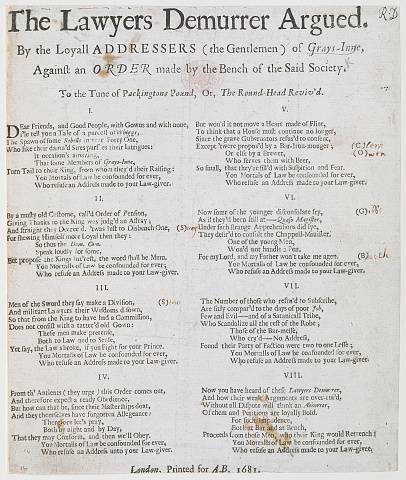 The Lawyers Demurrer Argued.
By the Loyall ADDRESSERS (the Gentlemen) of Grays-Inne,
Against an ORDER made by the Bench of the Said Society.
To the Tune of Packingtons Pound, Or, The Round-Head Reviv'd.
I.
Dear Friends, and Good People, with Gowns and with none,
I'le tell you a Tale of a parcel of Whiggs,
The Spawn of some Rebells in Forty One,
Who like their damn'd Sires puff'd their
It occasion's amazing,
That some Members of Grays-Inne,
Turn Tail to their King, from whom they'd their Raising:
You Mortals of Law be consounded for ever,
Who refuse an Address made to your Law-giver.
II.
By a musty old Custome, call'd Order of Pension,
Giving Thanks to the King was judg'd an Assay;
And straight they Decree'd, 'twas left to Disbench One, (S)
For shewing Himself more Loyal then they:
So thus the Dom. Com.
Speak loudly for some,
But propose the Kings int'rest, the word shall be Mum.
You Mortals of Law be consounded for ever,
Who refuse an Address made to your Law-giver.
III.
Men of the Sword they say make a Division, (S)
And militant Lawyers their Wisdoms disown,
So that from the King to have had a Commission,
Does not consist with a tatter'd old Gown:
These men make pretence,
Both to Law and to Sense,
Yet say, the Law's broke, if you Fight for your Prince.
You Mortals of Law be consounded for ever,
Who refuse an Address made to your Law-giver.
IV.
From th' Antients (they urge) this Order comes out,
And therefore expect a ready Obedience,
But how can that be, since their Masterships doat,
And they themselves have forgotten Allegeance:
Therefore let's pray,
Both by night and by Day,
That they may Conform, and then we'll Obey.
You Mortals of Law be consounded for ever,
Who refuse an Address made to your Law-giver.
V.
But wou'd it not move a Heart made of Flint,
To think that a House must continue no longer,
Since the grave Gubernators refus'd to consent,
Except 'twere propos'd by a Bar-Iron-monger; (C)
Or else by a Brewer, (O)wen
Who serves them with Beer,
So small, that they're fill'd with Suspition and Fear.
You Mortals of Law be consounded for ever,
Who refuse an Address made to your Law-giver.
VI.
Now some of the younger disconsolate fry, (G)
As if they'd been still at Quese Master,
Under such strange Apprehensions did lye,
They desir'd to consult the Chappell-Minister.
One of the young Men,
Wou'd not handle a Pen,
For my Lord, and my Father won't take me agen. (B)
You Mortals of Law be consounded for ever,
Who refuse an Address made to your Law-giver.
VII.
The Number of those who refus'd to Subscribe,
Are fitly compar'd to the days of poor Job,
Few and Evil—and of a Satanicall Tribe,
Who Scandalize all the rest of the Robe;
Those of the Bar-messe,
Who cry'd—No Address,
Found their Party of Faction were two to one Lesse;
You Mortals of Law be consounded for ever,
Who refuse an Address made to your Law-giver.
VIII.
Now you have heard of these Lawyers Demurrer,
And how their weak Arguments are over-rul'd,
Without all Dispute will think an
Of them and Petitions are loyally fool'd.
For such Impudence,
Both at Bar and at Bench,
Proceeds from those Men, who their King would Retrench!
You Mortals of Law be consounded for ever,
Who refuse an Address made to your Law-giver.
London, Printed for A.B. 1681.